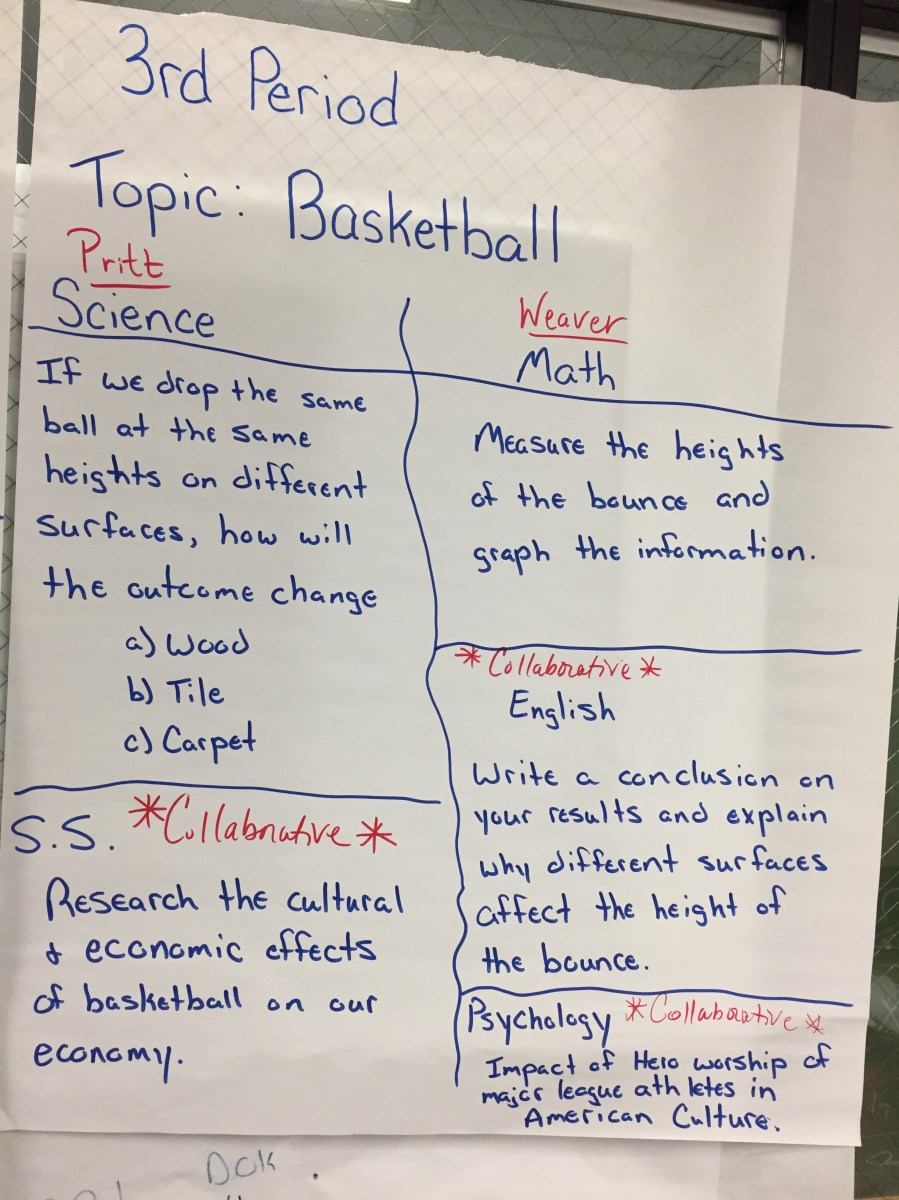 3rd Period
Topic: Basketball
Pritt
Science
If we drop the same
ball at the same
heights on different
surfaces, how will
the outcome change
a) Wood
b) Tile
c) Carpet
Weaver
Math
Measure the heights
of the bounce and
graph the information.
S.S. *Collaborative*
Research the cultural
& economic effects
of basketball on our
economy.
*Collaborative*
English
Write a conclusion on
your results and explain
why different surfaces
affect the height of
the bounce.
Psychology *Collaborative*
Impact of Hero worship of
major league athletes in
American Culture.